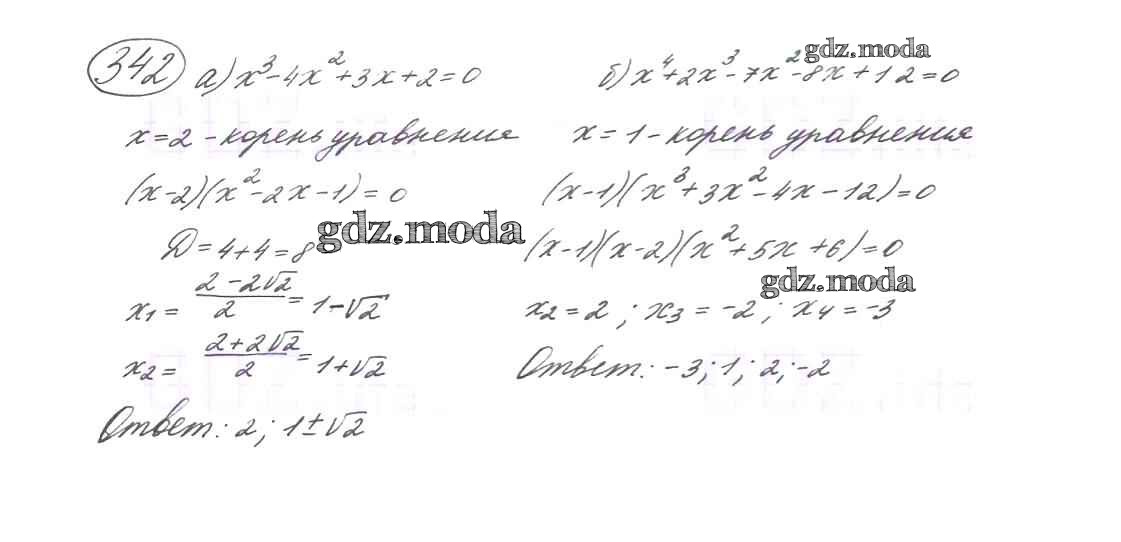 342 а) x³-4x²+3x+2=0
x=2 - корень уравнения
(x-2)(x²-2x-1)=0
D=4+4=8
x₁ = (2-2√2)/2 = 1-√2
x₂ = (2+2√2)/2 = 1+√2
Ответ: 2; 1±√2
б) x⁴+2x³-7x²-8x+12=0
x=1 - корень уравнения
(x-1)(x³+3x²-4x-12)=0
(x-1)(x-2)(x²+5x+6)=0
x₂=2; x₃=-2; x₄=-3
Ответ: -3; 1; 2; -2
gdz.moda
gdz.moda
gdz.moda